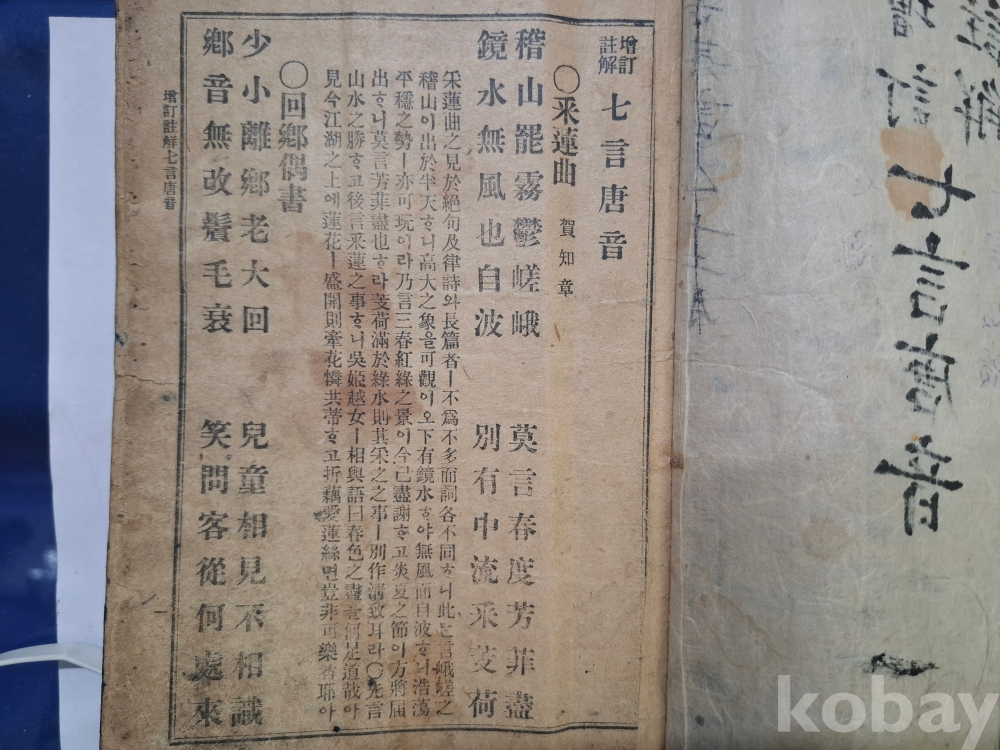 七言唐音
增訂註解 七言唐音
〇采蓮曲 賀知章
稽山罷霧鬱嵯峨 莫言春度芳菲盡
鏡水無風也自波 別有中流采芰荷
采蓮曲之見於絕句及律詩와長篇者ㅣ不爲不多而詞各不同ᄒᆞ니此ᄂᆞᆫ言峨嵯之
稽山이出於半天ᄒᆞ니高大之象을可觀이오下有鏡水ᄒᆞ야無風而自波ᄒᆞ니浩蕩
平穩之勢ㅣ亦可玩이라乃言三春紅綠之景이今已盡謝ᄒᆞ고炎夏之節이方將屆
出ᄒᆞ니莫言芳菲盡也ᄒᆞ라芰荷滿於綠水則其采之之事ㅣ別作溝致耳라〇先言
山水之勝ᄒᆞ고後言采蓮之事ᄒᆞ니吳姬越女ㅣ相與語曰春色之盡을何足道哉아
見今江湖之上에蓮花ㅣ盛開則牽花憐共蒂ᄒᆞ고折藕愛蓮絲면豈非可樂者耶아
〇回鄉偶書
少小離鄉老大回 兒童相見不相識
鄉音無改鬢毛衰 笑問客從何處來
增訂註解七言唐音
kobay